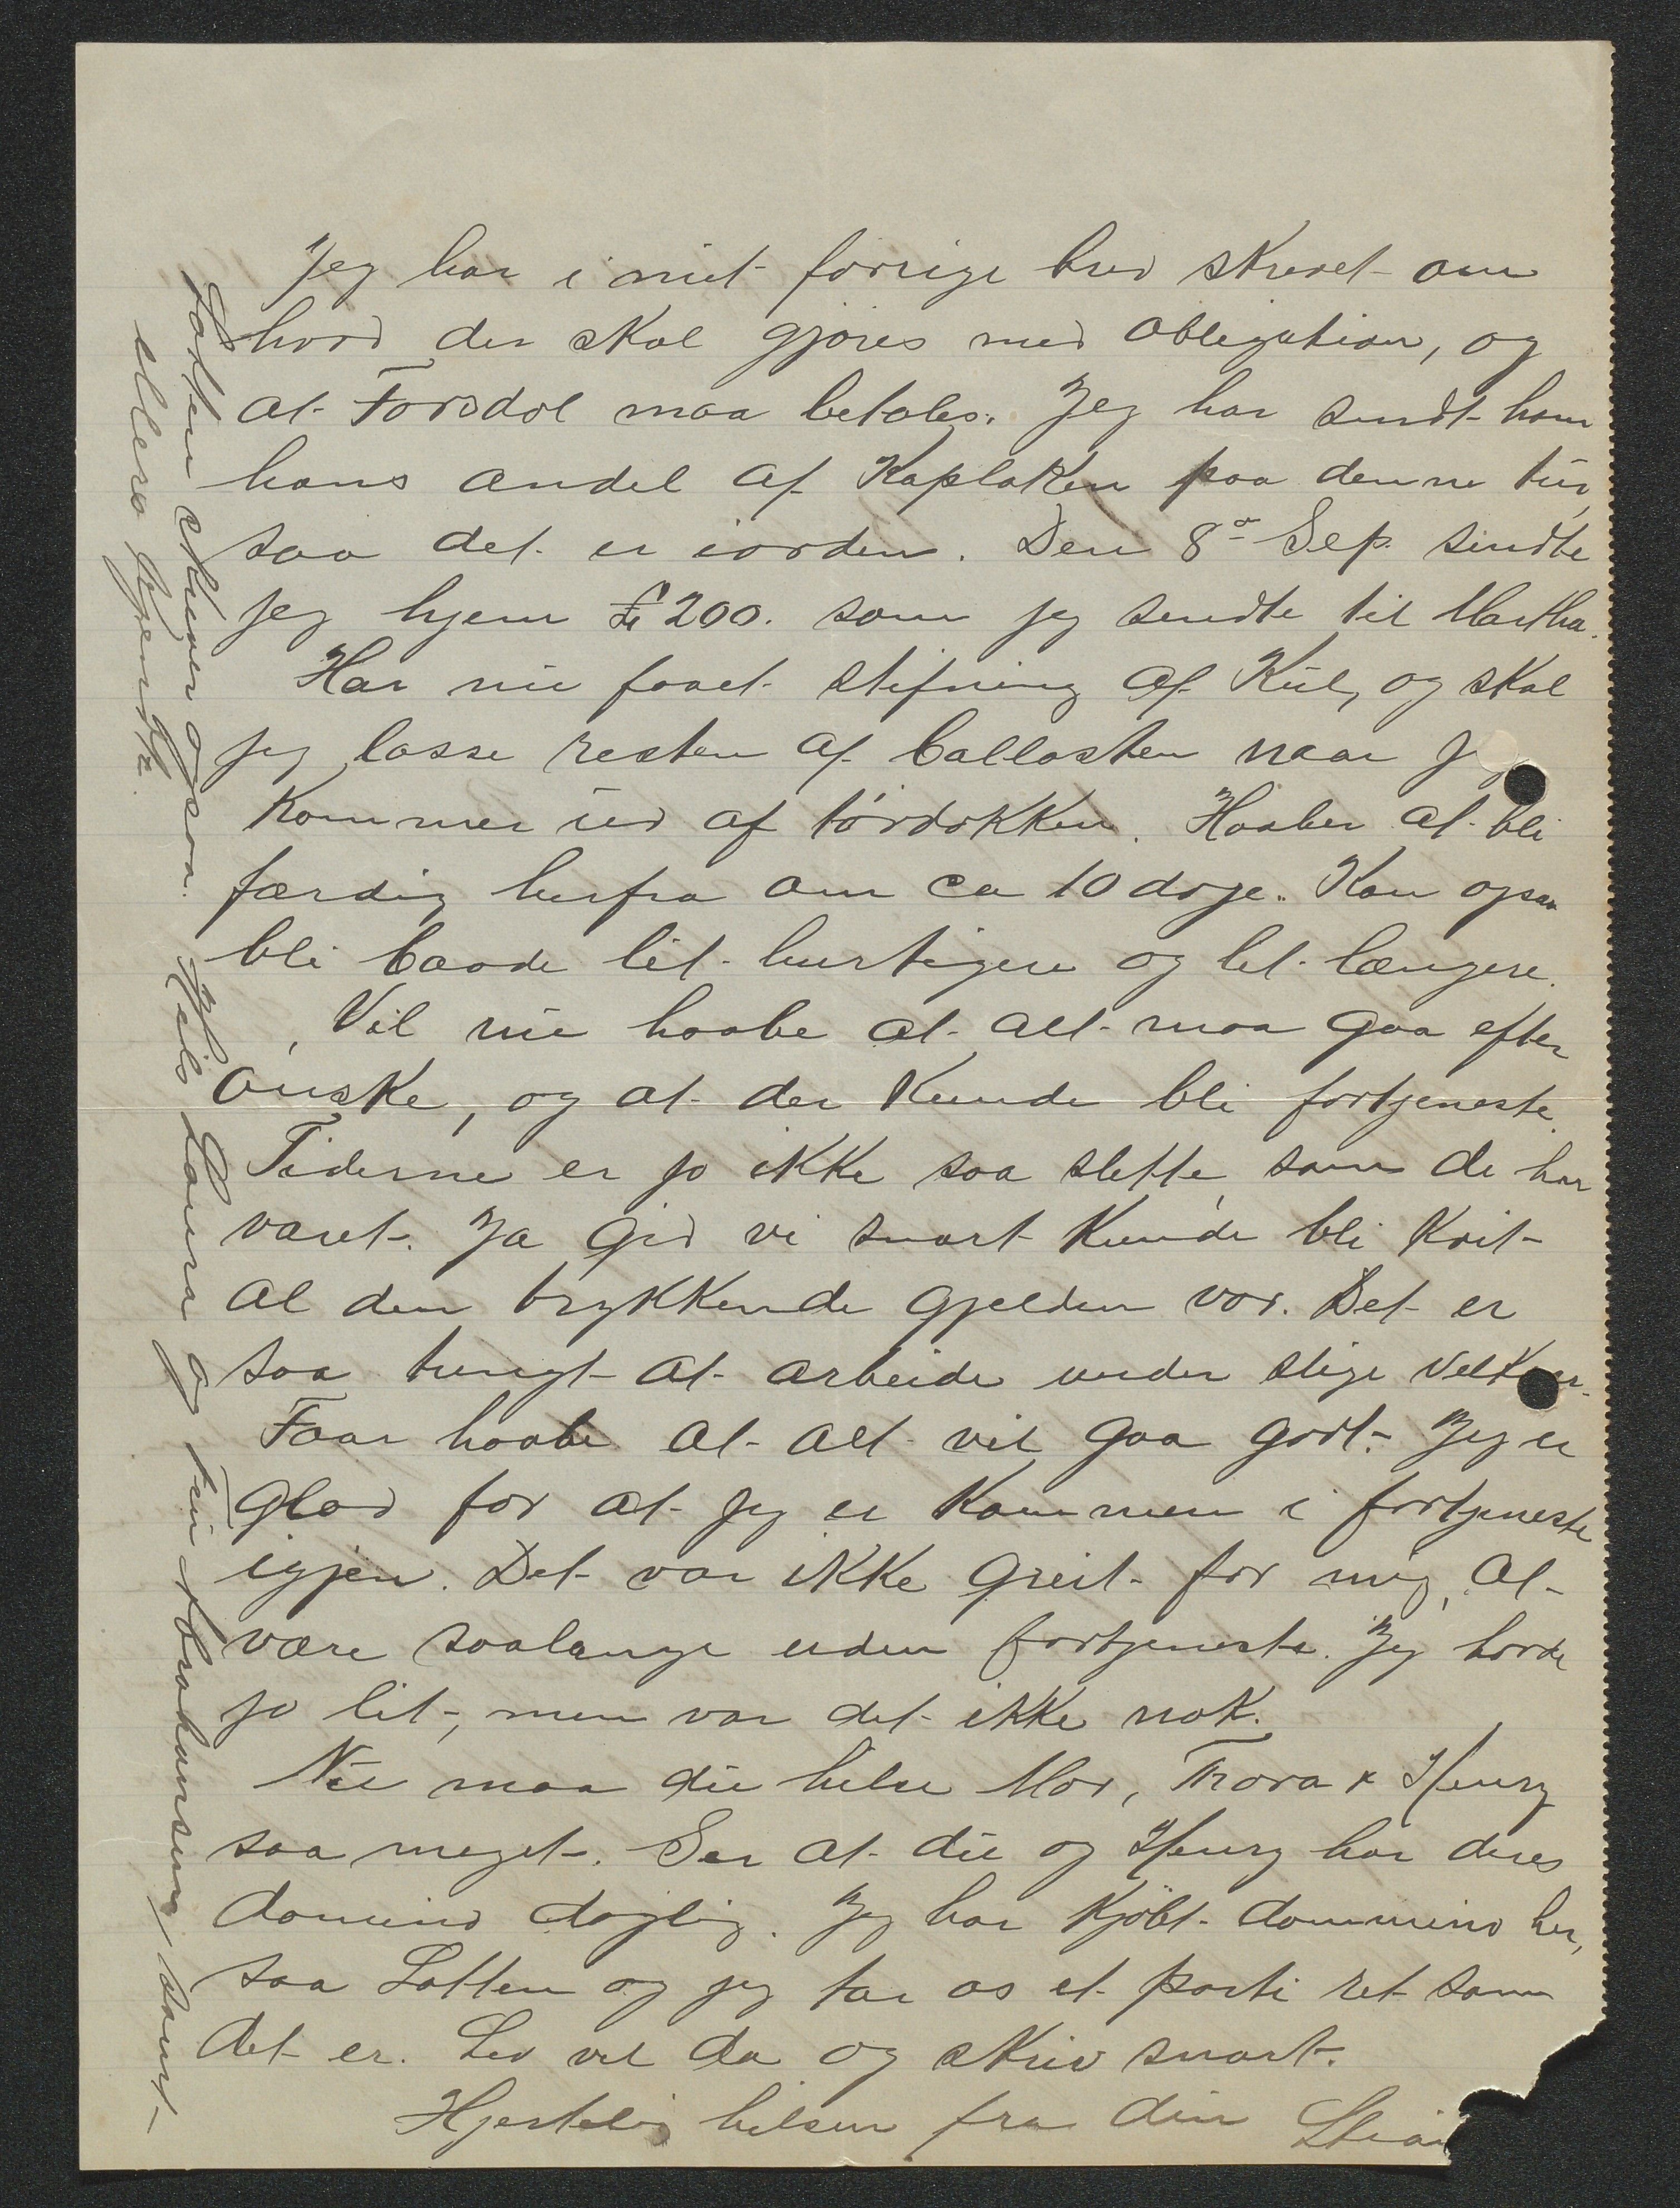 Jeg har i mit forrige brev skrevet om
hvad der skal gjøres med obligation, og
at Forsdal maa betales. Jeg har sendt ham
hans andel af Kaplaken paa denne tur,
saa det er iorden. Den 8de Sep. sendte
jeg hjem £ 200. som jeg sendte til Martha.
Har nu faaet stifning af Kul, og skal
jeg losse resten af ballasten naar j
kommer ud af tørdokken. Haaber at bli
færdig herfra om ca 10 dage. Kan ogsaa
bli baade lit hurtigere og lit længere.
Vil nu haabe at alt maa gaa efter
ønske, og at der kunde bli fortjeneste.
Tiderne er jo ikke saa slette som de har
været. Ja gid vi snart kunde bli kvit
al den trykkende gjelden vor. Det er
saa tungt at arbeide under slige vilkaar.
Faar haabe at alt vil gaa godt. Jeg er
glad for at jeg er kommen i fortjeneste
igjen. Det var ikke greit for mig, at
være saalænge uden fortjeneste. Jeg havde
jo lit, men var det ikke nok.
Nu maa du hilse Mor, Thora & Henry
saa meget. Ser at du og Henry har deres
domino daglig. Jeg har kjøbt dommino her,
saa Lotten og jeg tar os et parti ret som
det er. Lev vel da og skriv snart.
Hjertelig hilsen fra din
Lotten skriver ogsaa. Hils Laura og fru Abrahamsen, samt
alle bekjendte.